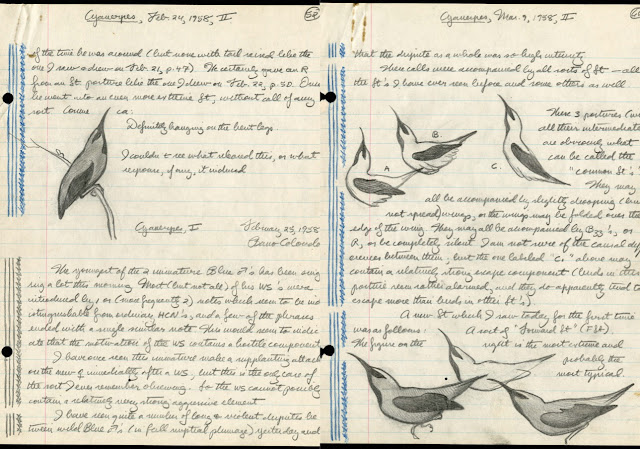 Cyanerpes, Feb. 24, 1958, II
52
of the time he was around (but none with tail raised like the
one I saw & drew on Feb. 21, p. 47). He certainly gave an R
from an St posture like the one I drew on Feb. 22, p. 50. Once
he went into an even more extreme St, without call of any
sort. Come ca:
Definitely hanging on the bent legs.
I couldn't see what released this, or what
response, if any, it induced
Cyanerpes, I
February 25, 1958
Barro Colorado
The youngest of the 2 immature Blue ♂'s has been sing
ing a lot this morning. Most (but not all) of his WS's were
introduced by 1 or (more frequently 2) notes which seem to be in
distinguishable from ordinary HCN's, and a few of the phrases
ended with a single similar note. This would seem to indic
ate that the motivation of the WS contains a hostile component.
I have once seen this immature make a supplanting attack
on the new ♀ immediately after a WS, but this is the only case of
the sort I ever remember observing. So the WS cannot possibly
contain a relatively very strong aggressive element
I have seen quite a number of long & violent disputes be
tween wild Blue ♂'s (in full nuptial plumage) yesterday and
Cyanerpes, Mar. 9, 1958, II
that the dispute as a whole was so high intensity.
These calls were accompanied by all sorts of St — all
the St's I have ever seen before and some others as well.
A.
B.
C.
These 3 postures (with
all their intermediates
are obviously what
can be called the
"common St's"
They may
all be accompanied by slightly drooping (but
not spread) wings, or the wings may be folded over the
edge of the wing. They may all be accompanied by B33's, or
R, or be completely silent. I am not sure of the causal diff
erences between them, but the one labeled "C." above may
contain a relatively strong escape component (birds in this
posture seem rather alarmed, and they do apparently tend to
escape more than birds in other St's).
A new St which I saw today for the first time
was as follows: A sort of "Forward St" (FSt).
The figure on the right is the most extreme and
probably the
most typical.